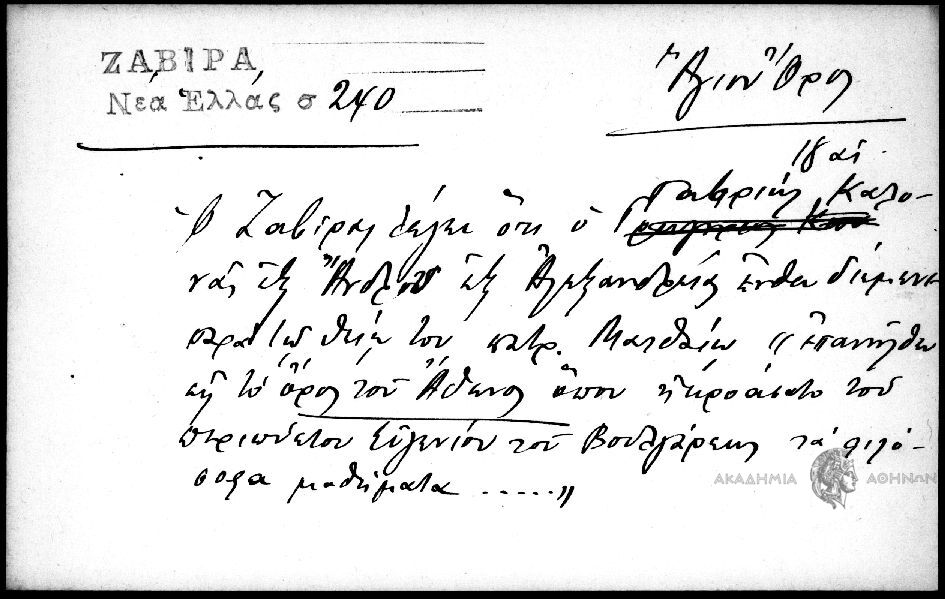 ΖΑΒΙΡΑ
Νέα Ἑλλάς σ 240
Ἅγιον Ὄρος
18 αἰ.
Ὁ Ζαβίρας λέγει ὅτι ὁ Γαβριὴλ Καλο-
νᾶς ἐξ Ἄνδρου ἐξ Ἀλεξανδρείας ἔνθα διέμενε
παρὰ τῷ θείῳ του πατρ. Ματθαίῳ "ἐπανῆλθεν
εἰς τὸ ὄρος τοῦ Ἄθωνος ὅπου ἠκροάσατο τοῦ
περιπύστου Εὐγενίου τοῦ Βουλγάρεως τὰ φιλό-
σοφα μαθήματα ......"
ΑΚΑΔΗΜΙΑ ΑΘΗΝΩΝ